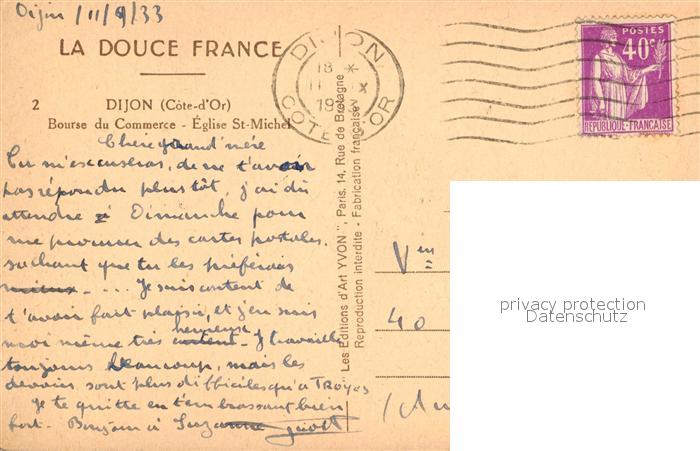 Dijon 11/9/33
LA DOUCE FRANCE
2 DIJON (Côte-d'Or)
Bourse du Commerce - Église St-Michel
DIJON
18 *
11 IX
19
CÔTE D'OR
POSTES
40c
REPUBLIQUE-FRANÇAISE
Chère grand'mère
Tu m'excuseras, de ne t'avoir
pas répondu plus tôt, j'ai dû
attendre Dimanche pour
me procurer des cartes postales.
sachant que tu les préférais
mieux. - ... Je suis content de
t'avoir fait plaisir, et j'en suis
moi même très heureux content. Je travaille
toujours beaucoup, mais les
devoirs sont plus difficiles qu'à Troyes
Je te quitte en t'embrassant bien
fort. Bonjour à Suzanne
Les Editions d'Art YVON", Paris, 14, Rue de Bretagne
Reproduction interdite - Fabrication française
40
privacy protection
Datenschutz